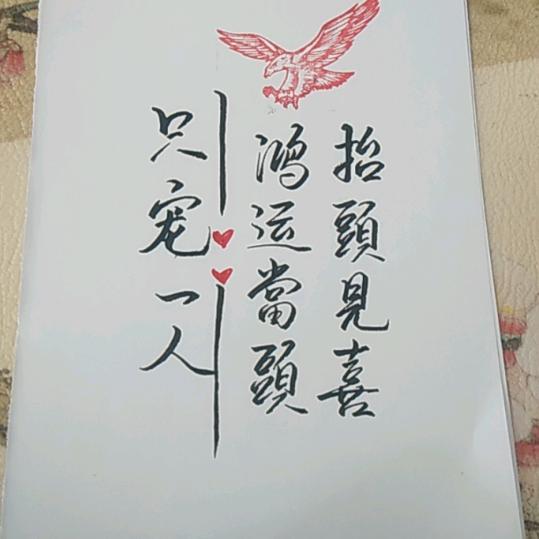 抬頭見喜
鴻运當頭
只宠一人